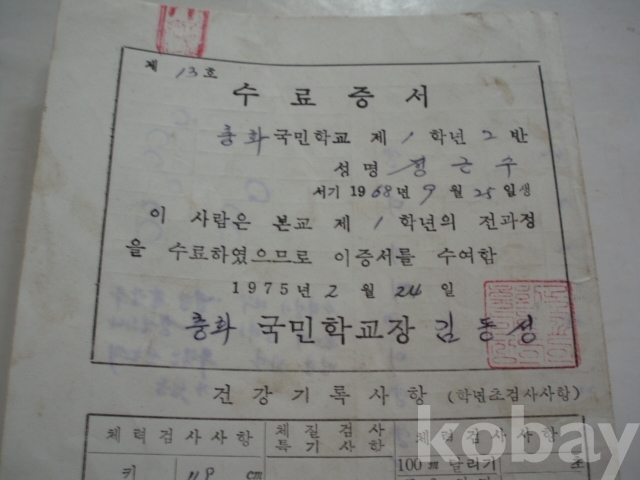 제 13 호
수 료 증 서
충화 국민학교 제 1 학년 2 반
성 명 정 근 수
서기 1968년 9 월 25일생
이 사람은 본교 제 1 학년의 전과정
을 수료하였으므로 이증서를 수여함
1975년 2 월 24 일
충화 국민학교장 김 동 성
건강기록사항 (학년초검사사항)
체력검사사항 체 질 검 사 체력검사사항
특 기 사 항
키 119 cm 100m 달리기 초
kobay